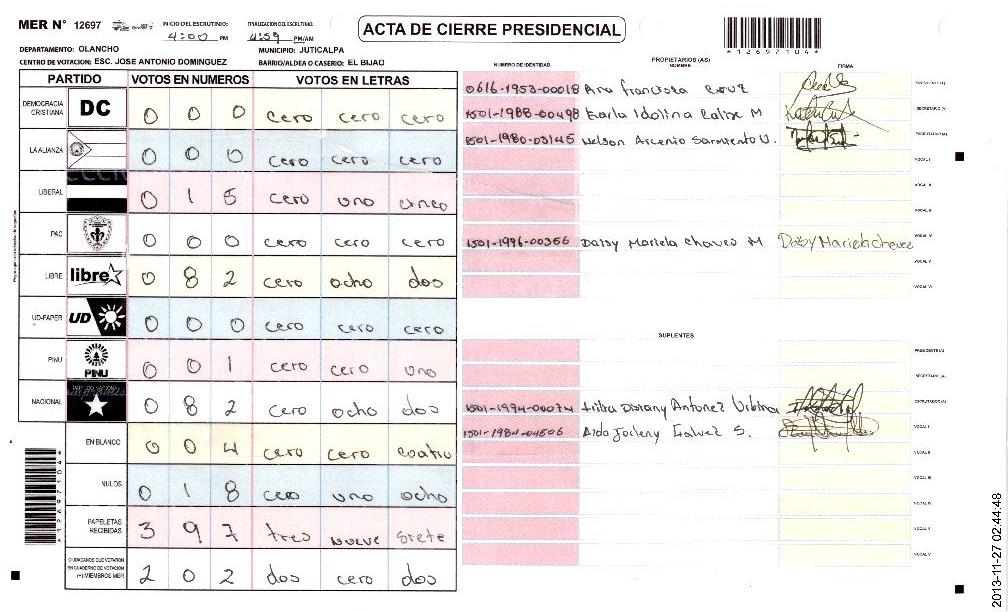 MER N° 12697
INICIO DEL ESCRUTINIO: 4:00 PM
FINALIZACION DEL ESCRUTINIO: 4:59 PM/AM
ACTA DE CIERRE PRESIDENCIAL
*12697104*
DEPARTAMENTO: OLANCHO MUNICIPIO: JUTICALPA
CENTRO DE VOTACION: ESC. JOSE ANTONIO DOMINGUEZ BARRIO/ALDEA O CASERIO: EL BIJAO
PARTIDO VOTOS EN NUMEROS VOTOS EN LETRAS
DEMOCRACIA CRISTIANA DC 0 0 0 cero cero cero
LA ALIANZA 0 0 0 cero cero cero
LIBERAL 0 1 5 cero uno cinco
PAC 0 0 0 cero cero cero
LIBRE libre 0 8 2 cero ocho dos
UD-FAPER UD 0 0 0 cero cero cero
PINU PINU 0 0 1 cero cero uno
NACIONAL 0 8 2 cero ocho dos
EN BLANCO 0 0 4 cero cero cuatro
NULOS 0 1 8 cero uno ocho
PAPELETAS RECIBIDAS 3 9 7 tres nueve siete
CIUDADANOS QUE VOTARON EN CUADERNO DE VOTACION (+) MIEMBROS MER 2 0 2 dos cero dos
PROPIETARIOS (AS)
NUMERO DE IDENTIDAD NOMBRE FIRMA
0616-1953-00018 Ana Francisca Cruz PRESIDENTE(A)
1501-1988-00498 Karla Idolina M SECRETARIO (A)
1501-1980-03145 Nelson Arcenio Sarmiento U. ESCRUTADOR(A)
VOCAL I
VOCAL II
VOCAL III
1501-1996-00366 Daisy Mariela Chavez M Daisy Mariela chavez VOCAL IV
VOCAL V
VOCAL VI
SUPLENTES
PRESIDENTE(A)
SECRETARIO(A)
1501-1994-00074 Dorany Antonez Urbina ESCRUTADOR (A)
1501-1984-04506 Aida Josleny Galvez S. VOCAL I
VOCAL II
VOCAL III
VOCAL IV
VOCAL V
VOCAL VI
*12697104*
2013-11-27 02:44:48